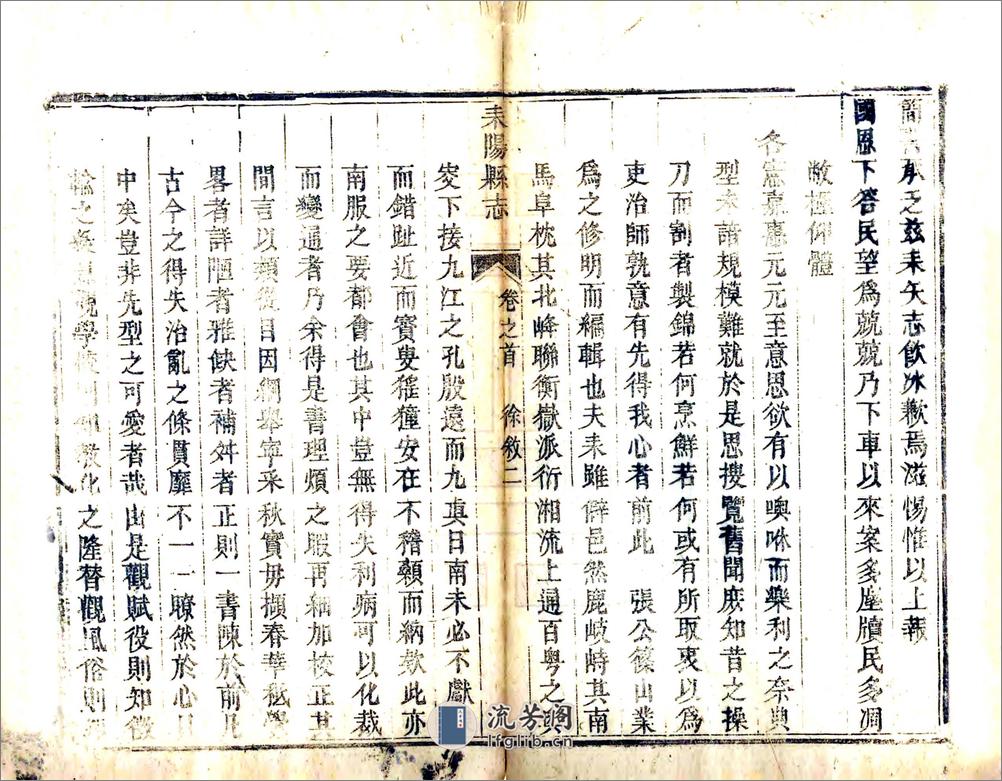 簡書承乏茲耒矢志飲冰歉焉滋惕惟以上報
國恩下答民望爲兢兢乃下車以來案多塵牘民多凋
敝極仰體
各憲嘉惠元元至意思欲有以噢咻而樂利之奈典
型未諳規模難就於是思搜覽舊聞庶知昔之操
刀而割者製錦若何烹鮮若何或有所取衷以爲
吏治師孰意有先得我心者前此 張公篠山業
爲之修明而編輯也夫耒雖僻邑然鹿岐峙其南
馬阜枕其北峰聯衡嶽派衍湘流上通百粤之
耒陽縣志
卷之首 徐敘二
笑下接九江之孔殷遠而九真日南未必不獻
而錯趾近而賨叟猺獞安在不稽顙而納欵此亦
南服之要都會也其中豈無得失利病可以化裁
而變通者乃余得是書理煩之暇再細加校正其
間言以類從目因綱舉寧采秋實毋擷春華秪學
畧者詳陋者雅缺者補舛者正則一書陳於前凡
古今之得失治亂之條貫靡不一一瞭然於心目
中矣豈非先型之可愛者哉由是觀賦役則知徵
輸之 觀學校則知教化之隆替觀風俗則
流芳閣
lfglib.cn